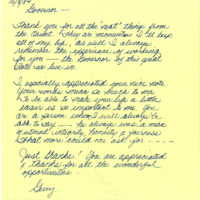 10/8/84
Governor —
Thank you for all the "neat" things from
the Cricket. They are mementoes I'll keep
all of my life, as will I always
remember the experience of working
for you — the Governor of this great
State we live in.
I especially appreciated your nice note
Your words mean so much to me
To be able to make your life a little
easier is so important to me. You
are a person whom I will always be
able to say — he always was a man
of utmost integrity, honesty & fairness
What more could one ask for —
Just thanks! You are appreciated
& thanks for all the wonderful
opportunities.